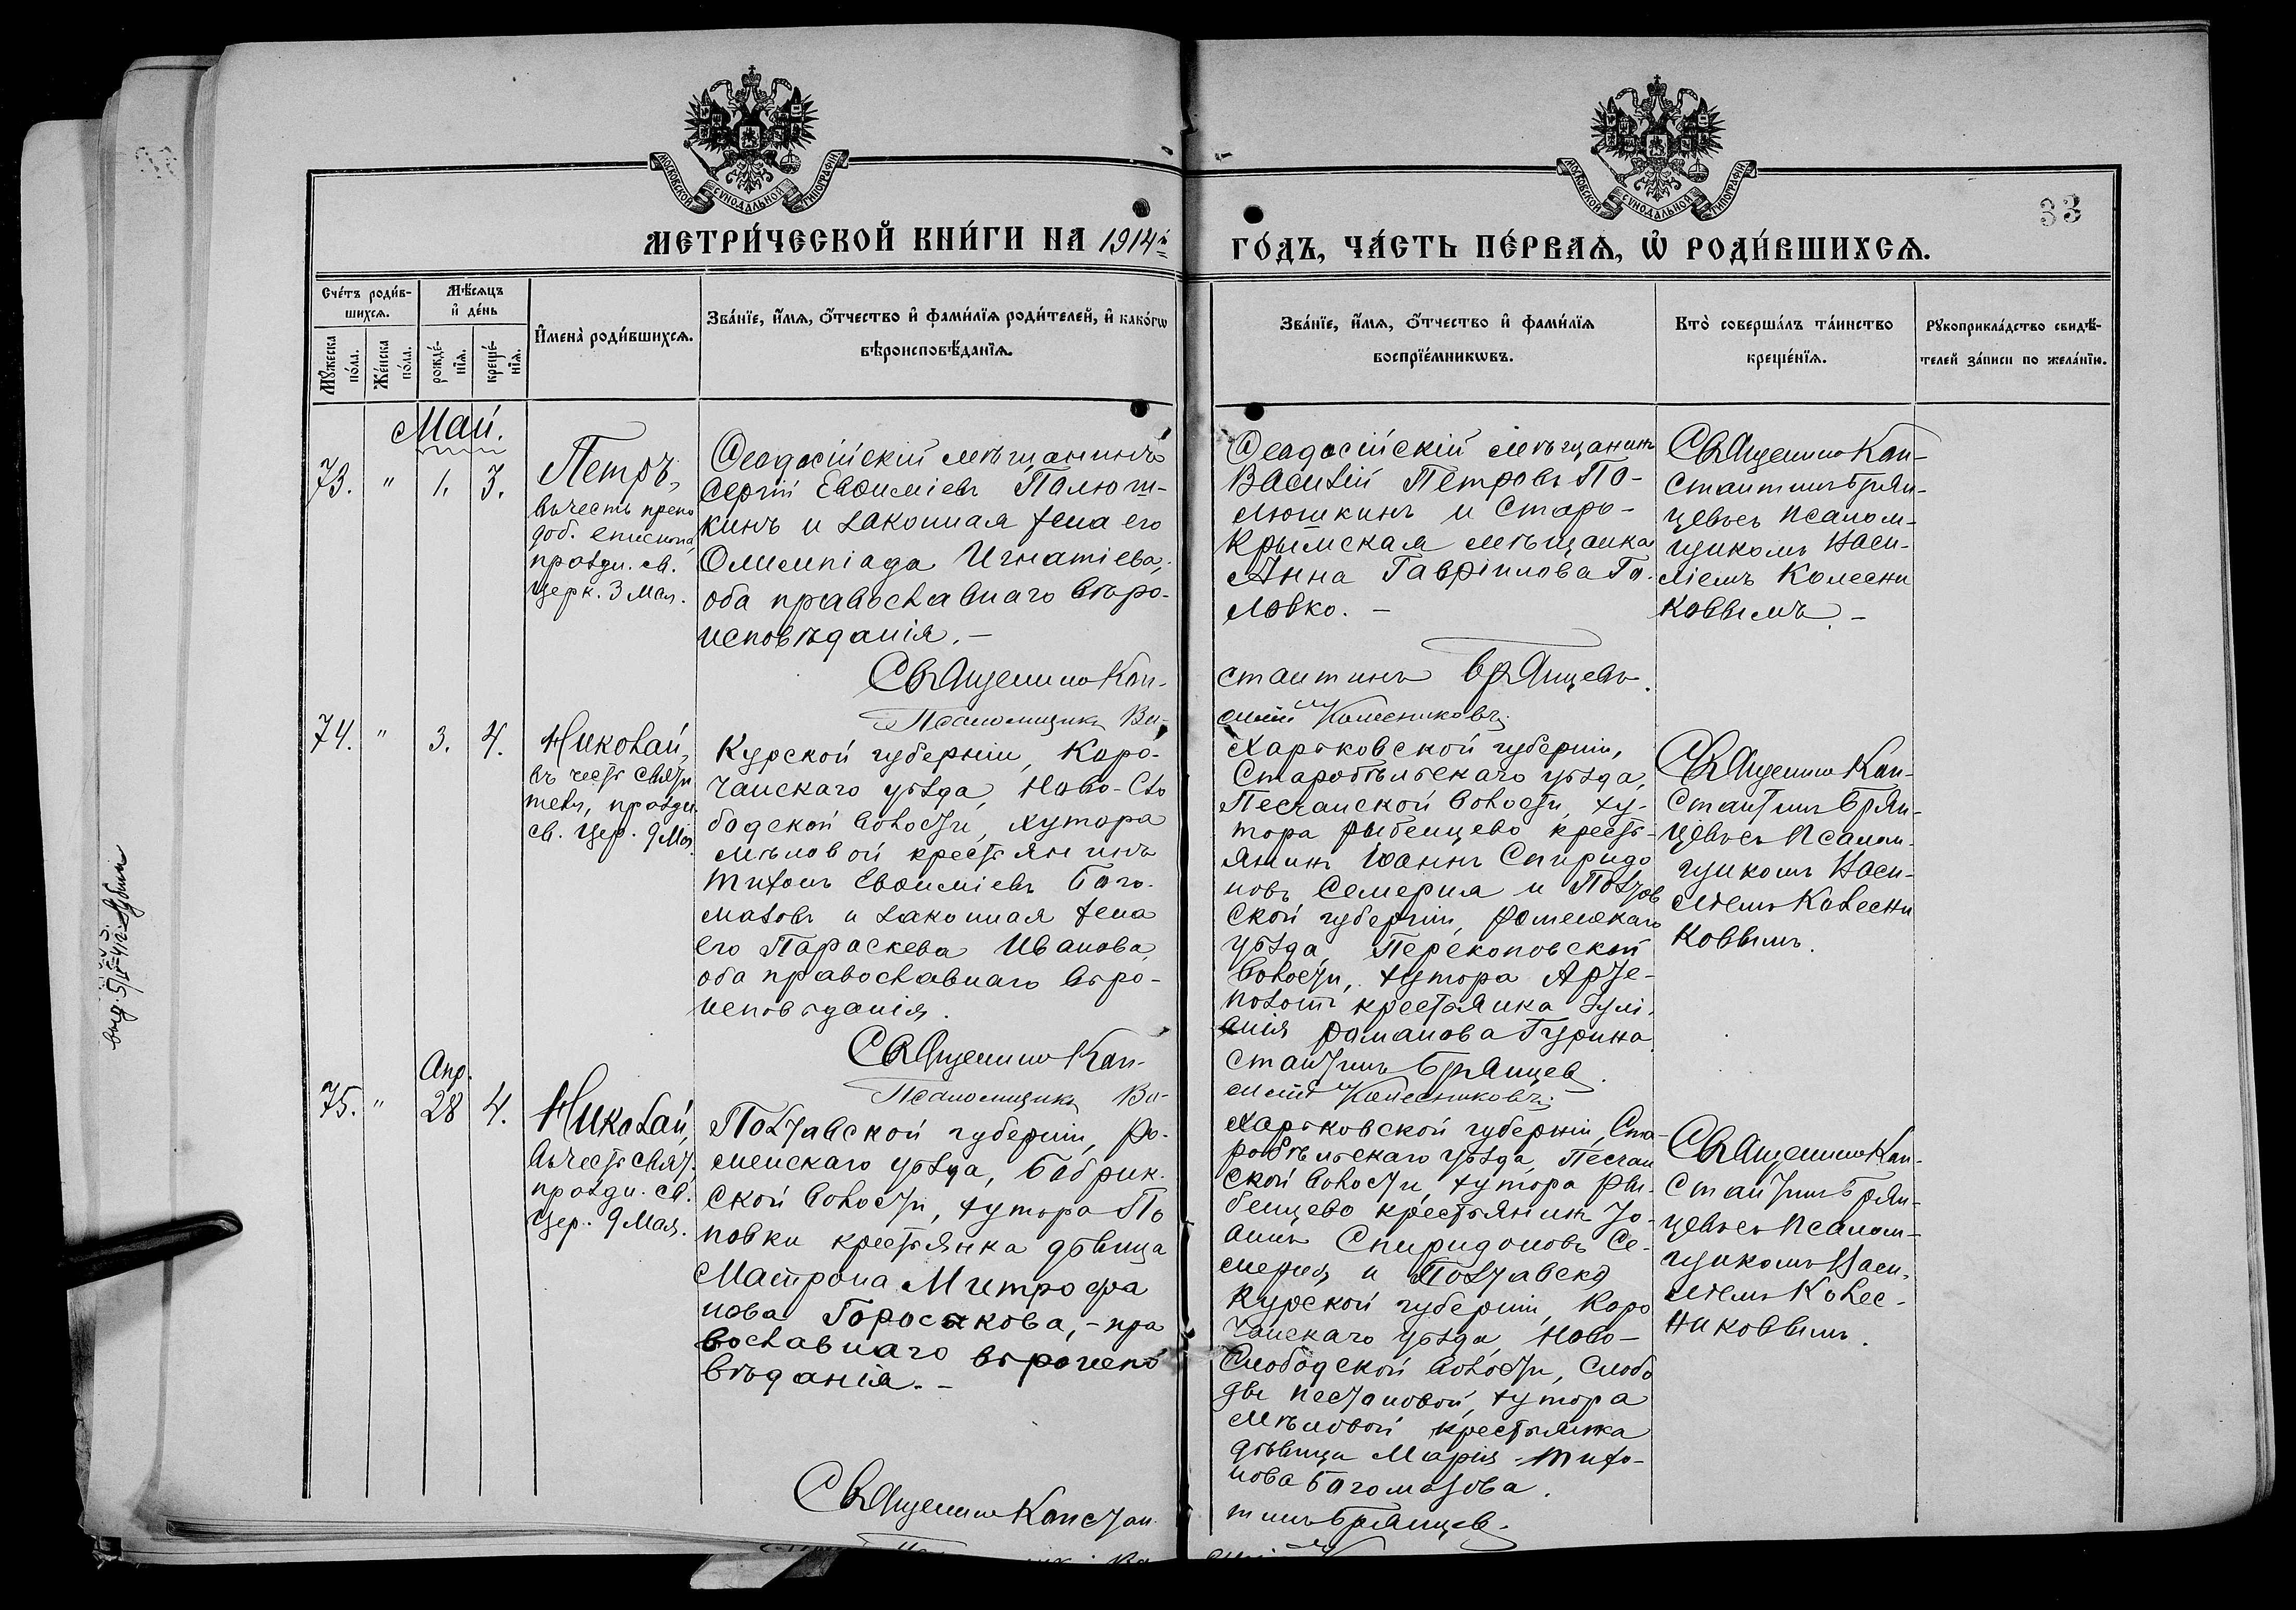 МОСКОВСКОЙ СУНОДАЛЬНОЙ ТИПОГРАФІИ
МОСКОВСКОЙ СУНОДАЛЬНОЙ ТИПОГРАФІИ
33
МЕТРИ́ЧЕСКОЙ КНИ́ГИ НА 1914й
ГО́ДЪ, ЧА́СТЬ ПЕ́РВАѦ, Ѡ҆ РОДИ́ВШИХСѦ.
Сче́тъ роди́в-
шихсѧ.
Мѣ́сѧцъ
и҆ де́нь
Мꙋ́жеска
по́ла.
Же́нска
по́ла.
рожде́-
нїѧ.
креще́-
нїѧ.
И҆мена̀ роди́вшихсѧ.
Зва́нїе, и҆́мѧ, ѻ҆́тчество и҆ фами́лїѧ роди́телей, и҆ како́гѡ
вѣроисповѣ́данїѧ.
Зва́нїе, и҆́мѧ, ѻ҆́тчество и҆ фами́лїѧ
воспрїе́мникѡвъ.
Кто̀ соверша́лъ та́инство
креще́нїѧ.
Рꙋкоприкла́дство свидѣ́-
телей за́писи по жела́нїю.
Май.
73. " 1. 3.
Петръ,
въ честь препо
доб. епископа,
праздн. св.
Церк. 3 Мая.
Ѳеодосійскій мѣщанинъ
Сергій Евѳиміевъ Палюш-
кинъ и законная жена его
Олимпіада Игнатіева,
оба православнаго вѣро-
исповѣданія. –
Ѳеодосійскій мѣщанинъ
Василій Петровъ Па-
люшкинъ и Старо-
Крымская мѣщанка
Анна Гавріилова Го-
ловко. –
Священно Кон-
стантинъ Брян-
цевъ съ псалом-
щикомъ Васи-
ліемъ Колесни
ковымъ. –
Священно Кон-
стантинъ Брянцевъ.
Псаломщикъ Ва-
силій Колесниковъ.
74. " 3. 4.
Николай,
въ честь Святи
теля, праздн.
св. Цер. 9 Мая.
Курской губерніи, Коро-
чанскаго уѣзда, Ново-Сло
бодской волости, хутора
Мѣловой крестьянинъ
Тихонъ Евѳиміевъ Бого-
мазовъ и законная жена
его Параскева Иванова,
оба православнаго вѣро-
исповѣданія.
Харьковской губерніи,
Старобѣльскаго уѣзда,
Песчанской волости, ху-
тора Рыбенцево кресть-
янинъ Іоаннъ Спиридо
новъ Семерня и Полтав
ской губерніи, Роменскаго
уѣзда, Перекоповской
волости, хутора
крестьянка
Романова Гурина.
Священно Кон-
стантинъ Брян-
цевъ съ Псалом-
щикомъ Васи-
ліемъ Колесни
ковымъ.
Священно Кон-
стантинъ Брянцевъ.
Псаломщикъ Ва-
силій Колесниковъ.
Апр.
75. " 28 4.
Николай,
въ честь Свят.
праздн. св.
Цер. 9 Мая.
Полтавской губерніи, Ро-
менскаго уѣзда, Бобрик-
ской волости, хутора По
повки крестьянка дѣвица
Матрона Митрофа
нова Горосakова, – пра
вославнаго вѣроиспо
вѣданія. –
Харьковской губерніи, Ста-
робѣльскаго уѣзда, Песчан
ской волости, хутора Ры-
бенцево крестьянинъ Іо-
аннъ Спиридоновъ Се-
мерня и Полтавско
Курской губерніи, Коро
чанскаго уѣзда, Ново-
Слободской волости, Слобо
ды хутора
Мѣловой крестьянка
дѣвица Марія Тихо-
нова Богомазова.
Священно Кон-
стантинъ Брян-
цевъ съ Псалом-
щикомъ Васи-
ліемъ Колес-
никовымъ.
Священно Констан-
тинъ Брянцевъ.